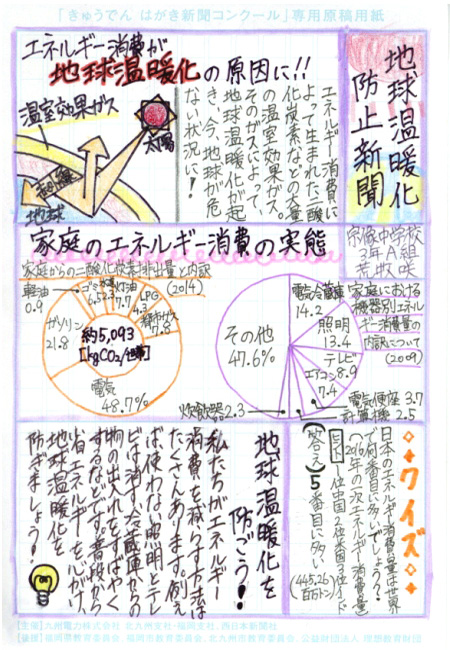 「きゅうでん はがき新聞コンクール」専用原稿用紙
地球温暖化
防止新聞
宗像中学校
3年A組
荒牧 咲
エネルギー消費が
地球温暖化の原因に!!
エネルギー消費に
よって生まれた二酸
化炭素などの大量
の温室効果ガス。
そのガスによって、
地球温暖化が起
き、今、地球が危
ない状況に!
温室効果ガス
太陽
地球
家庭のエネルギー消費の実態
家庭からの二酸化炭素排出量と内訳
(2014)
軽油
0.9
ゴミ
水道
灯油
7.7
LPG
都市ガス
7.8
ガソリン
21.8
約5,093
[kgCO₂/世帯]
電気
48.7%
家庭における
機器別エネル
ギー消費量の
内訳について
(2009)
電気冷蔵庫
14.2
照明
13.4
テレビ
8.9
エアコン
7.4
電気便座 3.7
計算機 2.5
炊飯器 2.3
その他
47.6%
クイズ
日本のエネルギー消費量は世界
で何番目に多いでしょう?
(2016年の一次エネルギー消費量)
ヒント 1位中国 2位米国 3位インド
(答え) 5番目に多い
(445.26
百万トン)
地球温暖化を
防ごう!
私たちがエネルギー
消費を減らす方法は
たくさんあります。例え
ば、使わない照明とテレ
ビは消す、冷蔵庫からの
物の出入れをすばやく
するなどです。普段から
省エネルギーを心がけ、
地球温暖化を
防ぎましょう!
[主催]九州電力株式会社 北九州支社・福岡支社、西日本新聞社
[後援]福岡県教育委員会、福岡市教育委員会、北九州市教育委員会、公益財団法人 理想教育財団